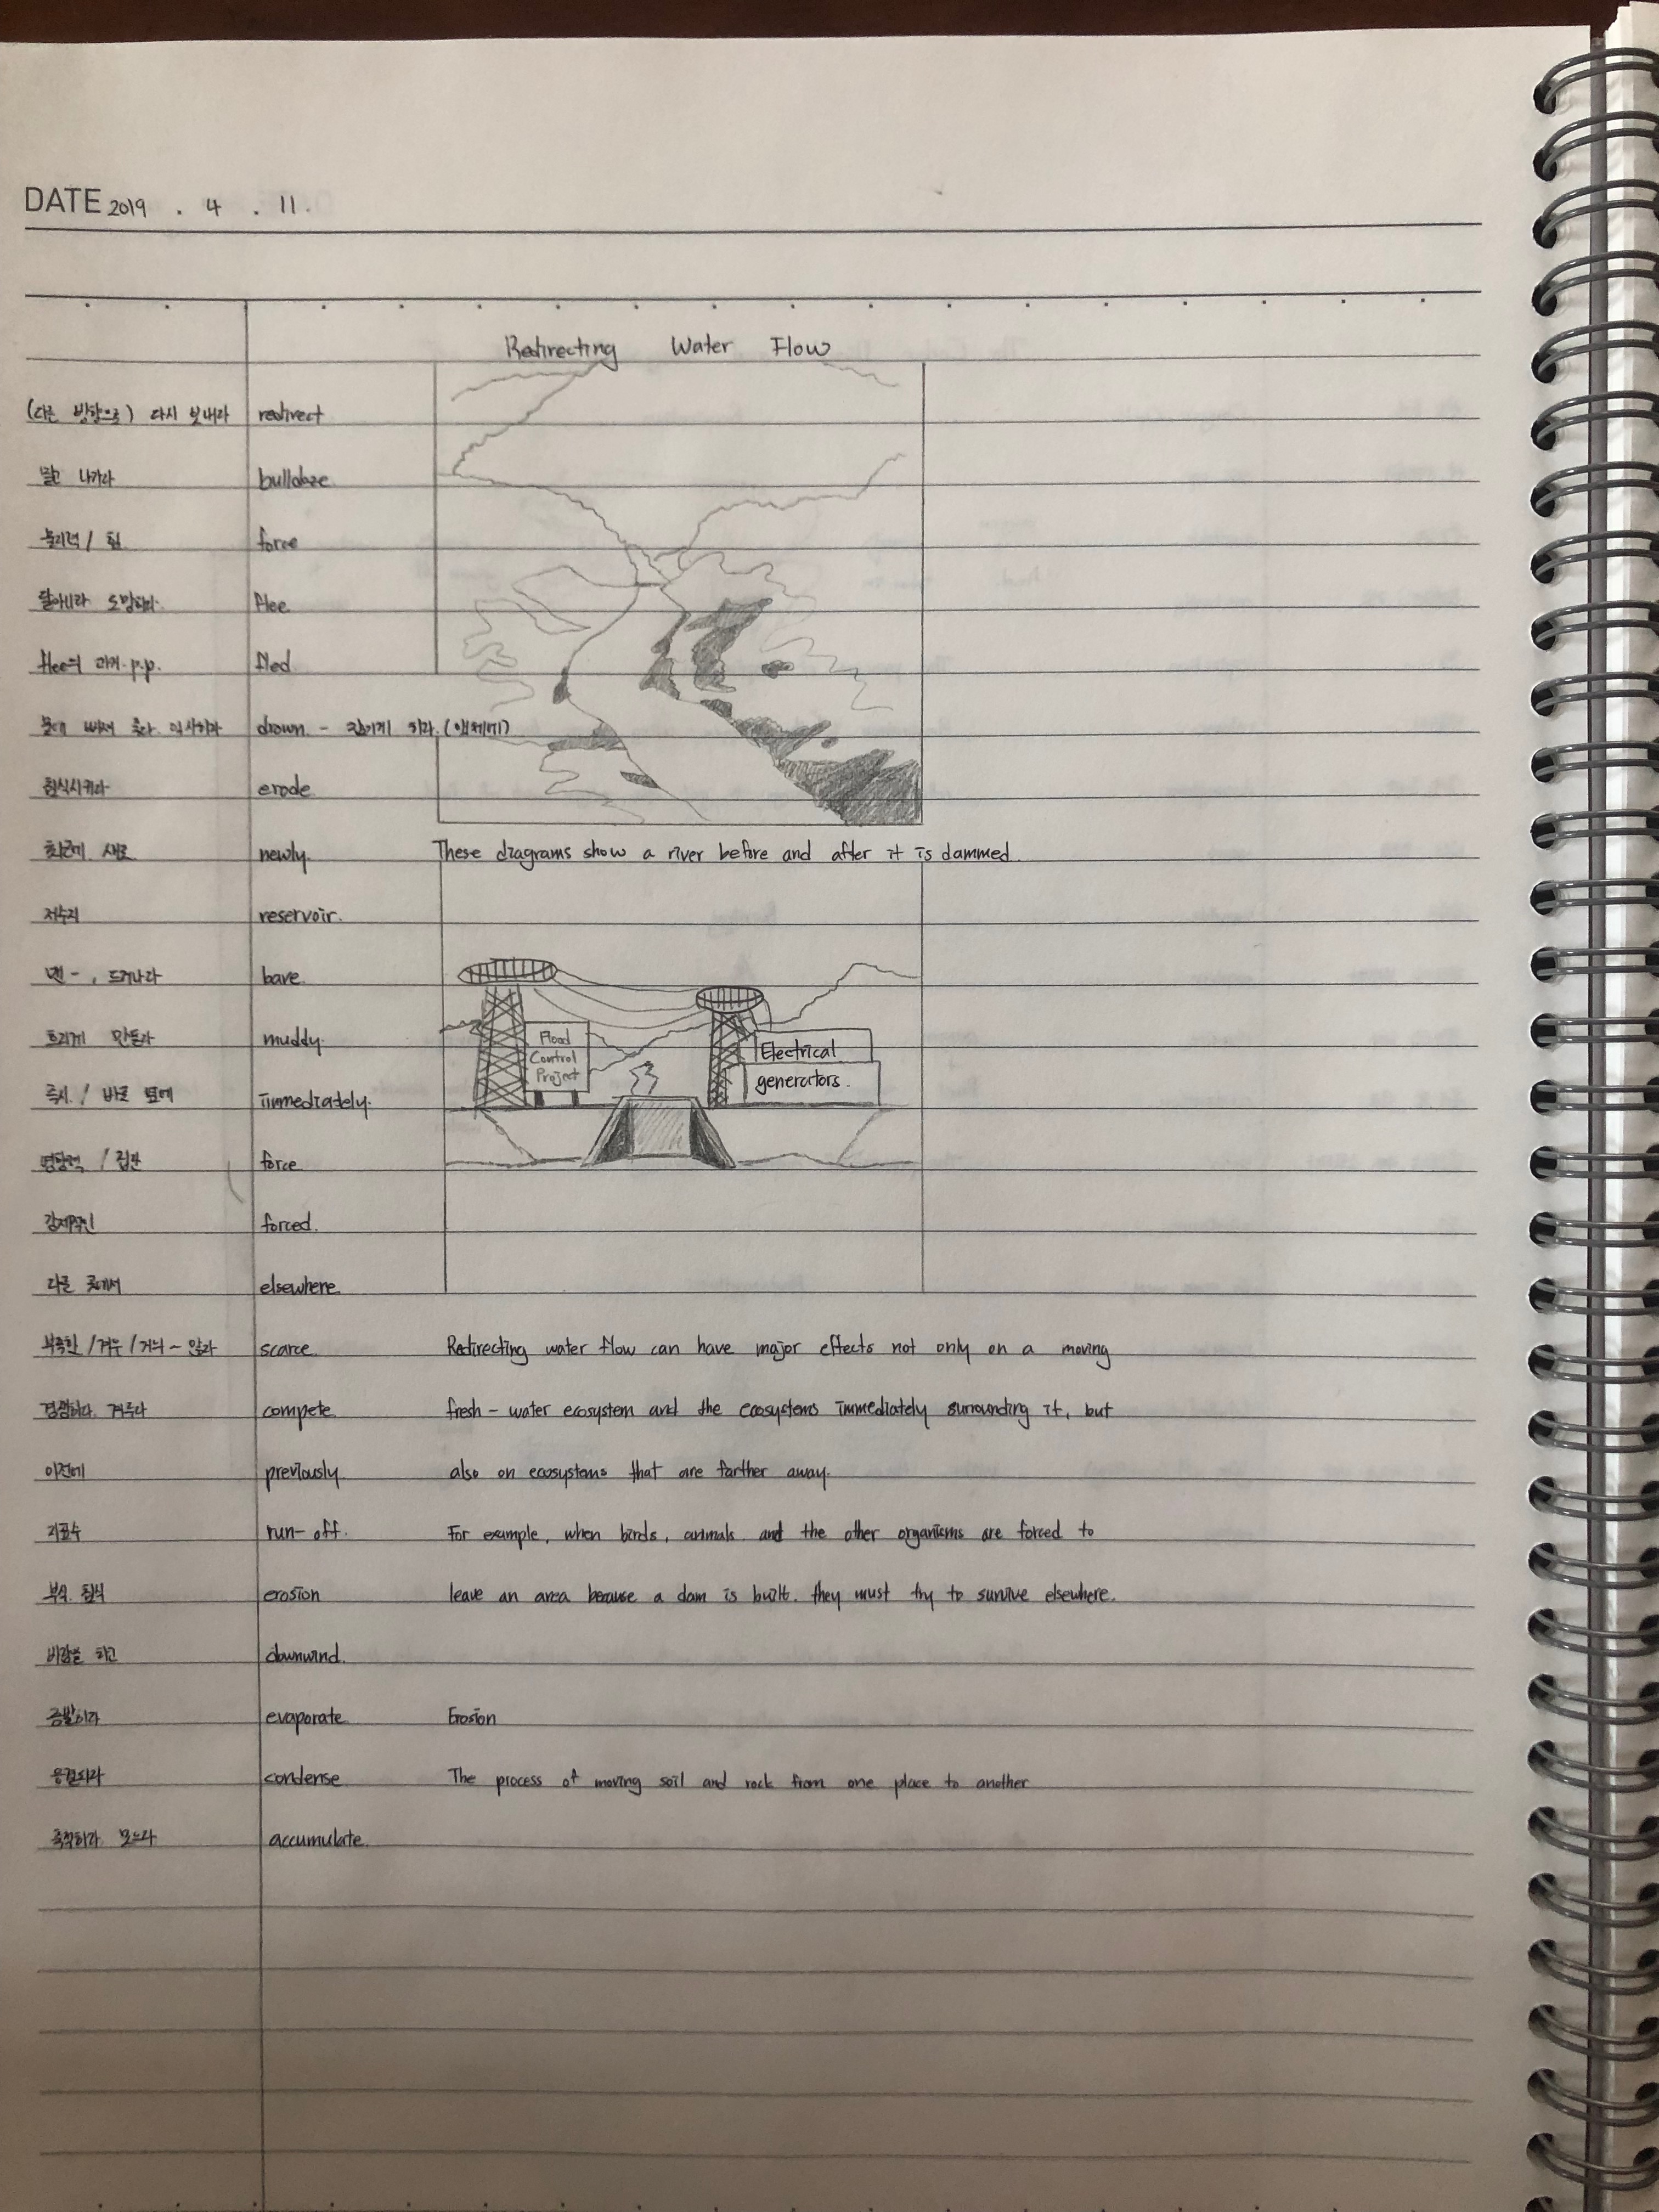 DATE 2019 . 4 . 11.
Redirecting Water Flow
(다른 방향으로) 다시 보내다 redirect
밀고 나가다 bulldoze
물리력 / 힘 force
달아나다 도망하다. flee
flee의 과거·p.p. fled
물에 빠져 죽다. 익사하다 drown. - 잠기게 하다. (액체에)
침식시키다 erode
최근에, 새로 newly. These diagrams show a river before and after it is dammed.
저수지 reservoir.
맨 - , 드러나다 bare.
Flood
흐리게 만들다 muddy. Control Electrical
Project generators.
즉시. / 바로 옆에 immediately.
force
강제적인 forced.
다른 곳에서 elsewhere.
부족한 / 겨우 / 거의 ~ 않다 scarce. Redirecting water flow can have major effects not only on a moving
경쟁하다. 겨루다 compete. fresh - water ecosystem and the ecosystems immediately surrounding it, but
이전에 previously also on ecosystems that are farther away.
지표수 run-off. For example, when birds, animals and the other organisms are forced to
부식. 침식 erosion leave an area because a dam is built. they must try to survive elsewhere.
바람을 타고 downwind.
증발하다 evaporate. Erosion
응결되다 condense. The process of moving soil and rock from one place to another
축적하다. 모으다 accumulate.